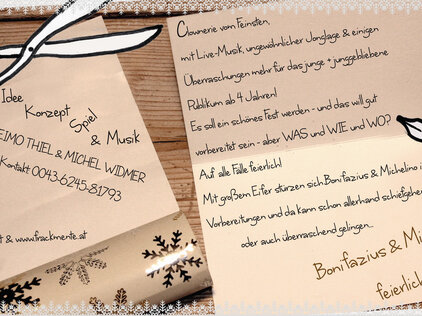 Idee
Konzept
Spiel
& Musik
EIMO THIEL & MICHEL WIDMER
Kontakt 0043-6245-81793
t & www.frackmente.at
Clownerie vom Feinsten,
mit Live-Musik, ungewöhnlicher Jonglage & einigen
Überraschungen mehr für das junge + junggebliebene
Publikum ab 4 Jahren!
Es soll ein schönes Fest werden - und das will gut
vorbereitet sein - aber WAS und WIE und WO?
Auf alle Fälle feierlich!
Mit großem Eifer stürzen sich Bonifazius & Michelino i
Vorbereitungen und da kann schon allerhand schiefgehe
oder auch überraschend gelingen...
Bonifazius & Mi
feierlich